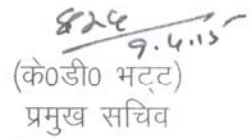 9.4.15
(के0डी0 भट्ट)
प्रमुख सचिव